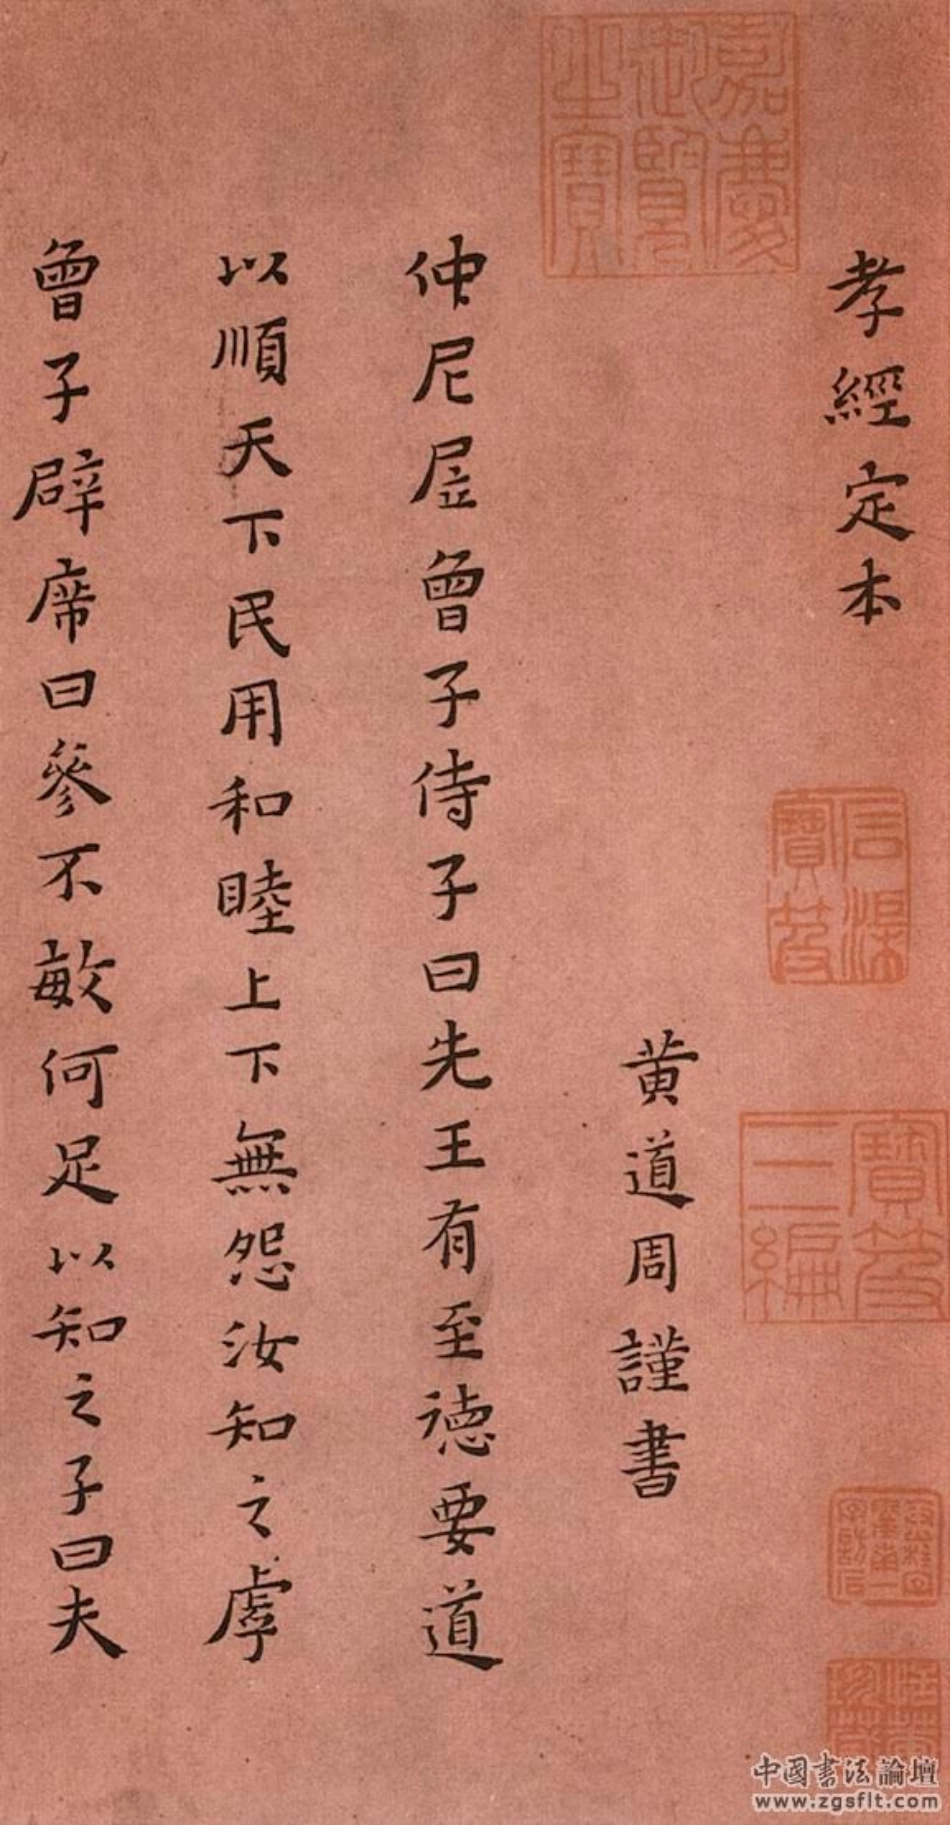 孝經定本
黄道周謹書
仲尼凥曾子侍子曰先王有至德要道
以順天下民用和睦上下無怨汝知之虖
曾子辟席曰參不敏何足以知之子曰夫
嘉慶御覽之寶
石渠寶笈
寶笈三編
中國書法論壇
www.zgsflt.com